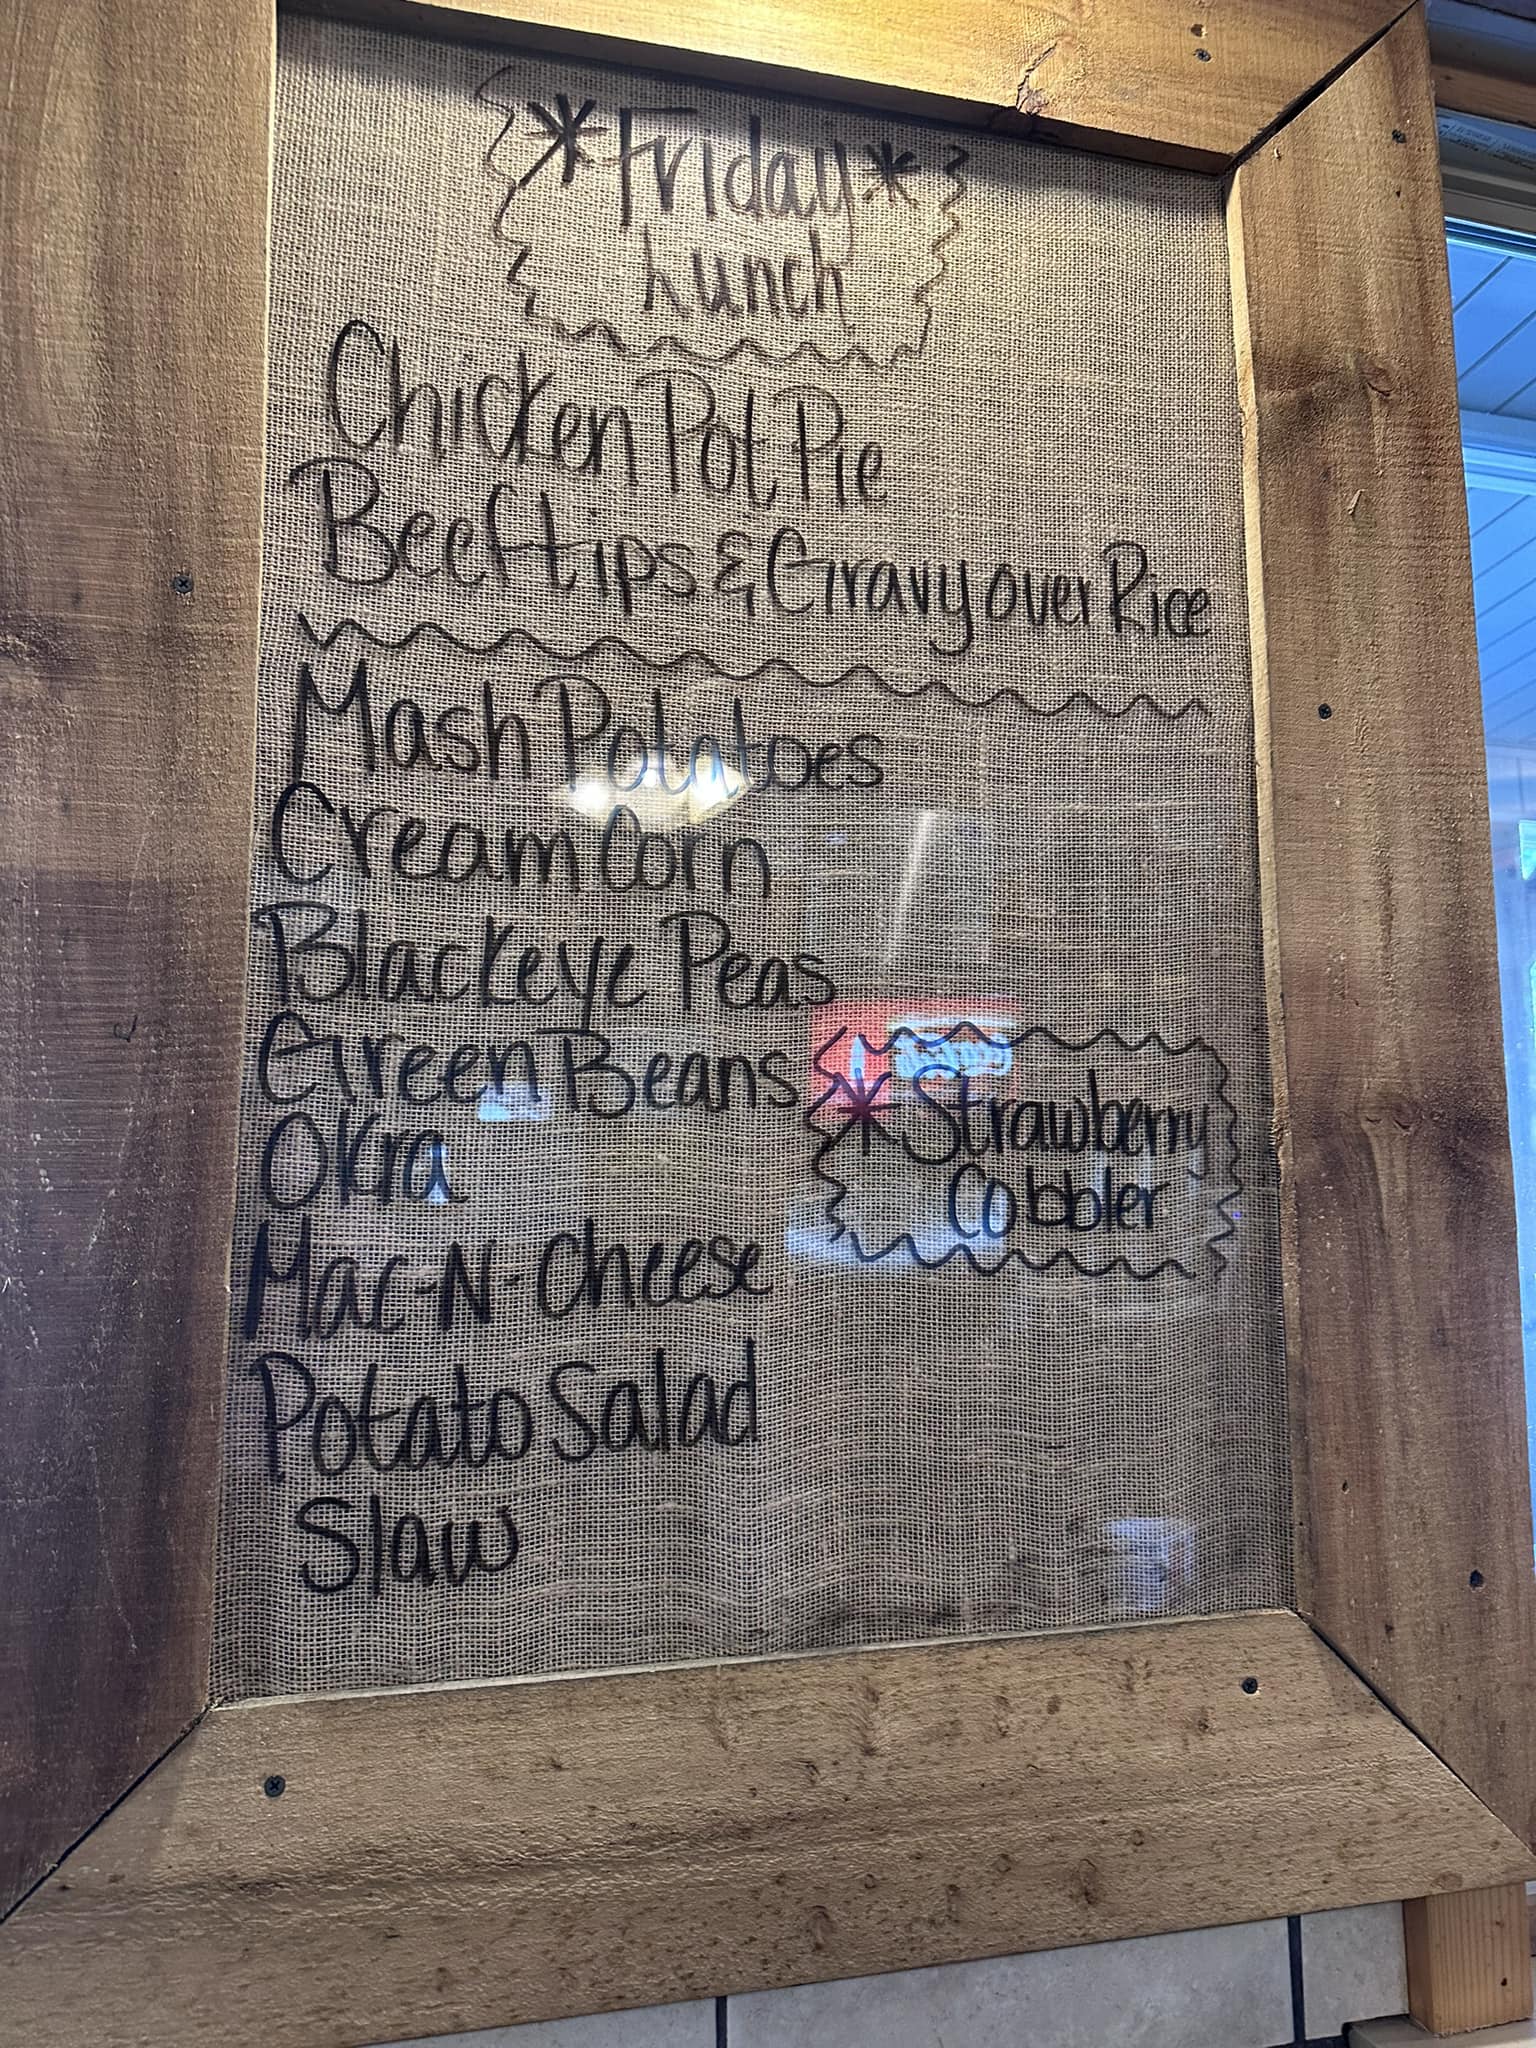 *Friday*
Lunch
Chicken Pot Pie
Beef tips & Gravy over Rice
Mash Potatoes
Cream Corn
Blackeye Peas
Green Beans
Okra
Mac-N-Cheese
Potato Salad
Slaw
*Strawberry
Cobbler